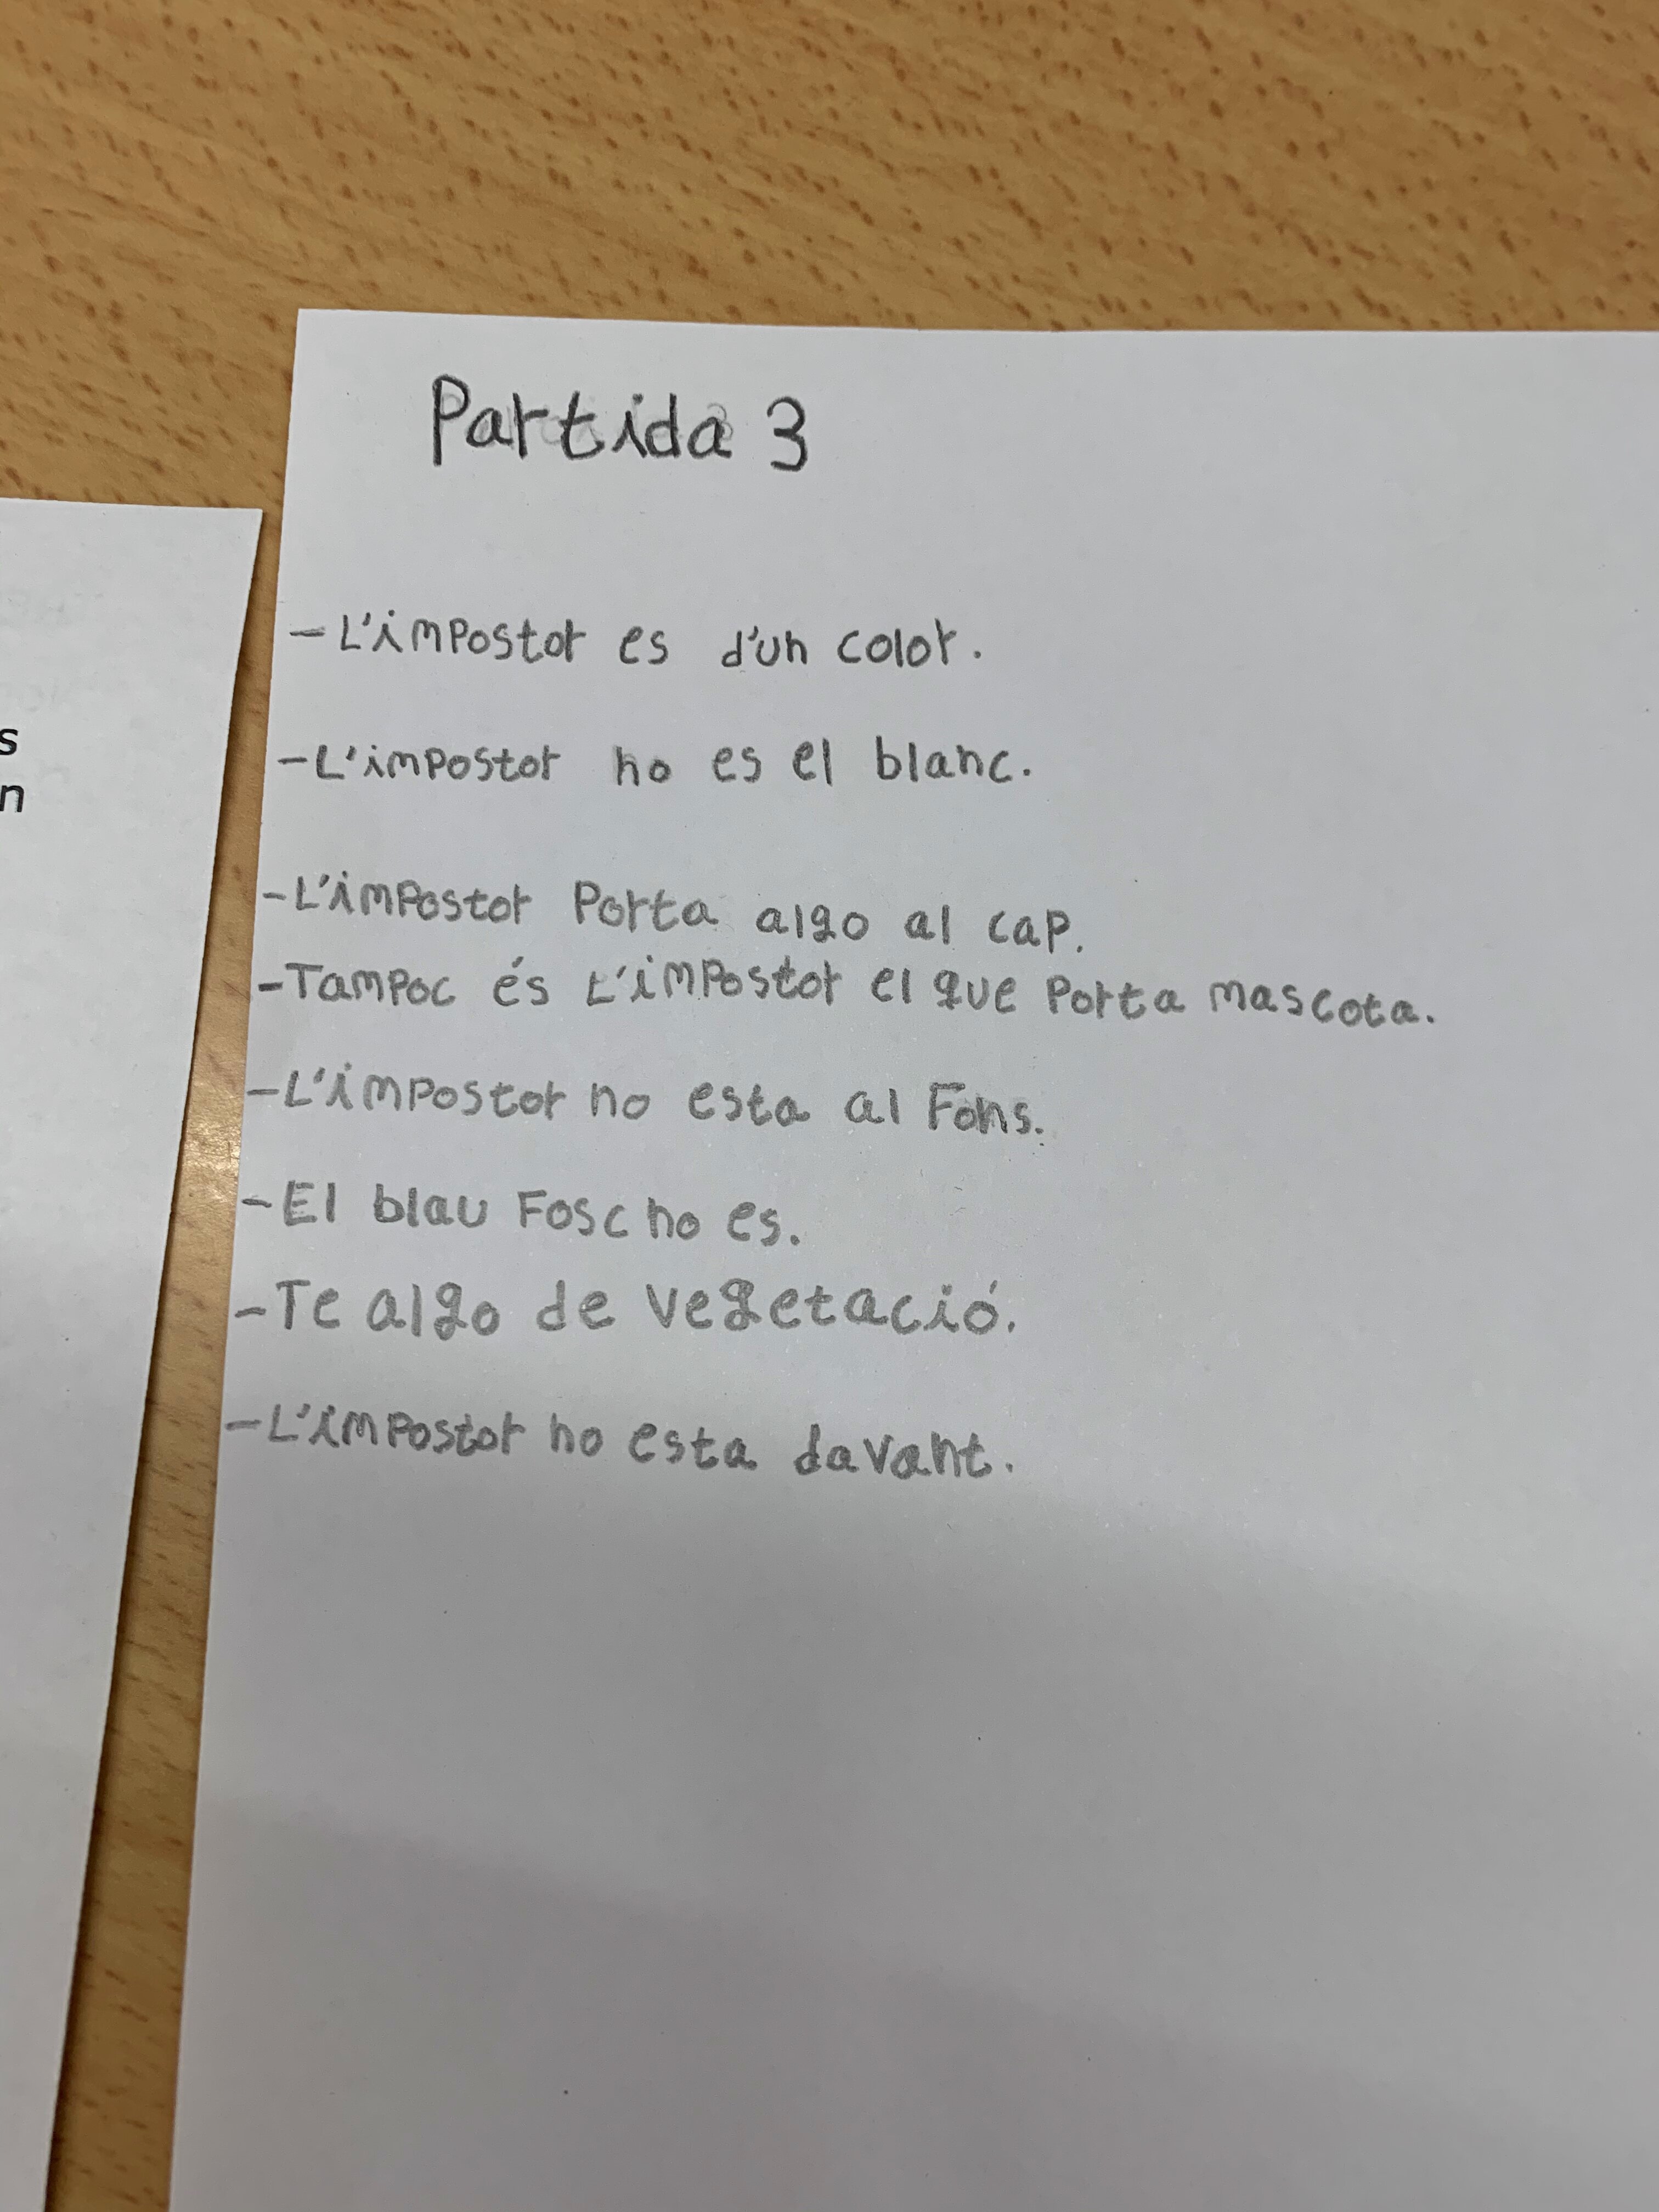 Partida 3
s
n
- L'impostor es d'un color.
- L'impostor no es el blanc.
- L'impostor Porta algo al cap.
- Tampoc és L'impostor el que Porta mascota.
- L'impostor no esta al Fons.
- El blau Fosc no es.
- Te algo de vegetació.
- L'impostor no esta davant.